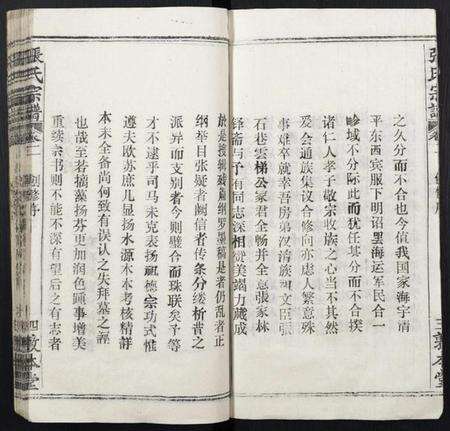 張氏宗譜 卷一 創修序 三 敦本堂
之久分而不合也今值我国家海宇清
平东西宾服下明诏罢海运军民合一
畛域不分际此而犹任其分而不合揆
诸仁人孝子敬宗收族之心当不其然
爰会通族集议合修向亦虑人繁意殊
事难卒就幸吾房弟汉清族叔文臣张
石巷雲梯公家君全畅并全息張家林
铎斋与予有同志深相赞美竭力蒇成
故是授辑将篇细罗墨稿是者仍乱者正
纲举目张疑者阙信者传条分缕析昔之
派异而支别者今则璧合而珠联矣予等
才不逮乎司马未克表扬祖德宗功式惟
遵夫欧苏庶几显扬水源木本考核精詳
本未全备尚何致有误认之失拜墓之誣
也哉至若摛藻扬芬更加润色踵事增美
重续宗书则不能不深有望后之有志者
張氏宗譜 卷一 創修序 四 敦本堂